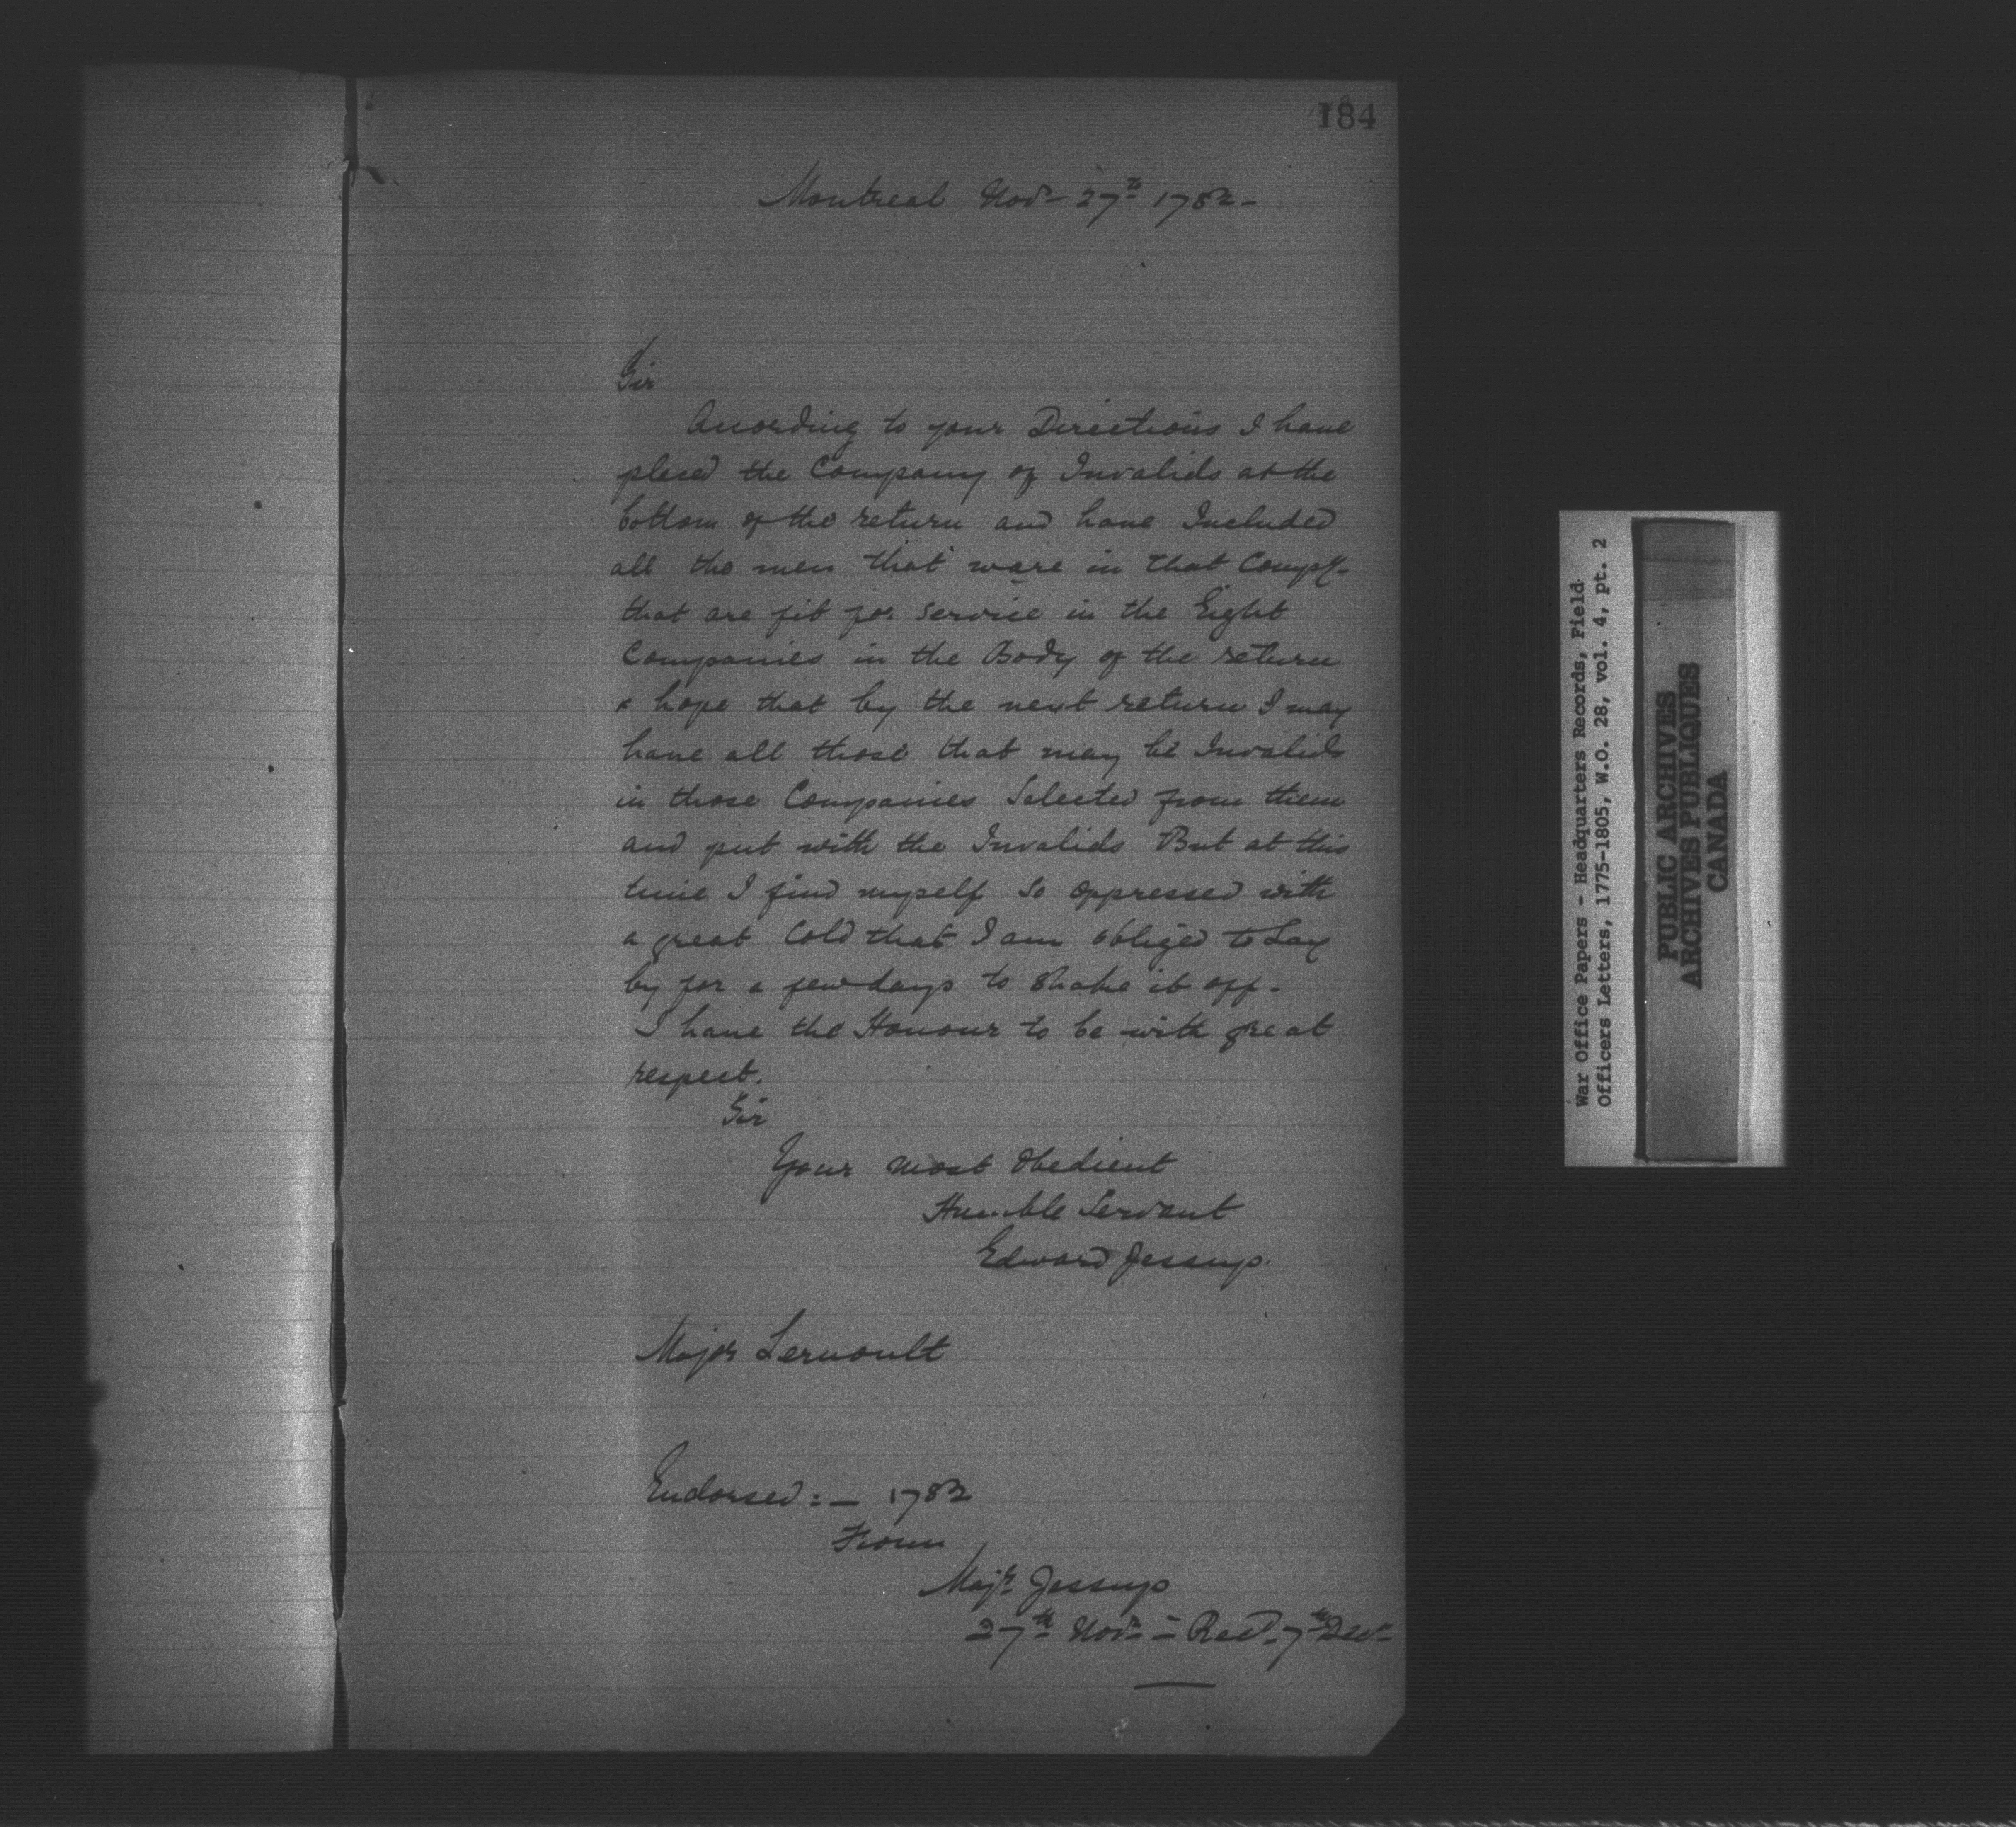 184
Montreal Novr 27th 1782-
Sir
According to your Directions I have
plased the Company of Invalids at the
bottom of the return and have Included
all the men that ware in that Compy-
that are fit for Service in the Eight
Companies in the Body of the return
& hope that by the next return I may
have all those that may be Invalids
in those Companies Selected from them
and put with the Invalids But at this
time I find myself So oppressed with
a great Cold that I am obliged to Lay
by for a few days to Shake it off-
I have the Honour to be with great
respect.
Sir
Your most Obedient
Humble Servant
Edward Jessup.
Major Lernoult
Endorsed:- 1782
From
Majr Jessup
27th Novr - Recd 7th Decr
War Office Papers - Headquarters Records, Field
Officers Letters, 1775-1805, W.O. 28, vol. 4, pt. 2
PUBLIC ARCHIVES
ARCHIVES PUBLIQUES
CANADA